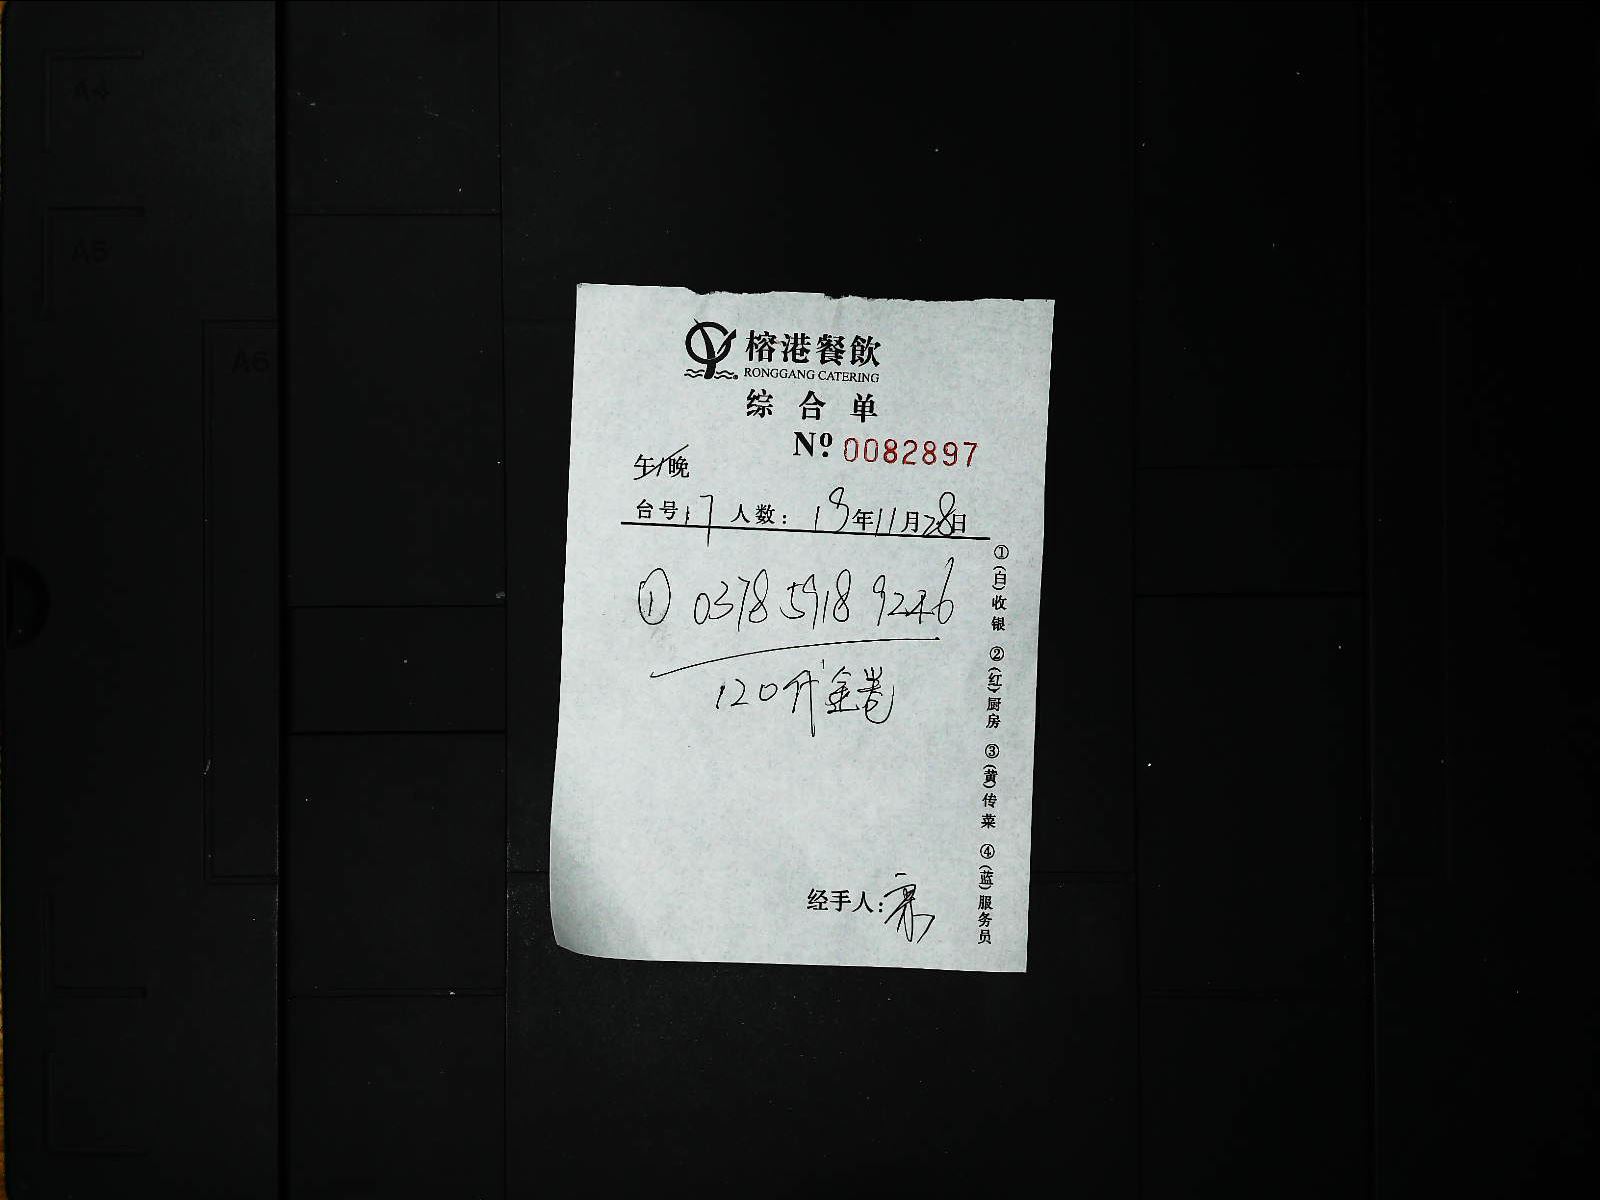 A4
A5
A6
榕港餐飲
RONGGANG CATERING
综合单
Nº 0082897
午/晚
台号 17 人数: 19年11月28日
① 0378 5918 9246
120升
经手人:
①(白)收银 ②(红)厨房 ③(黄)传菜 ④(蓝)服务员